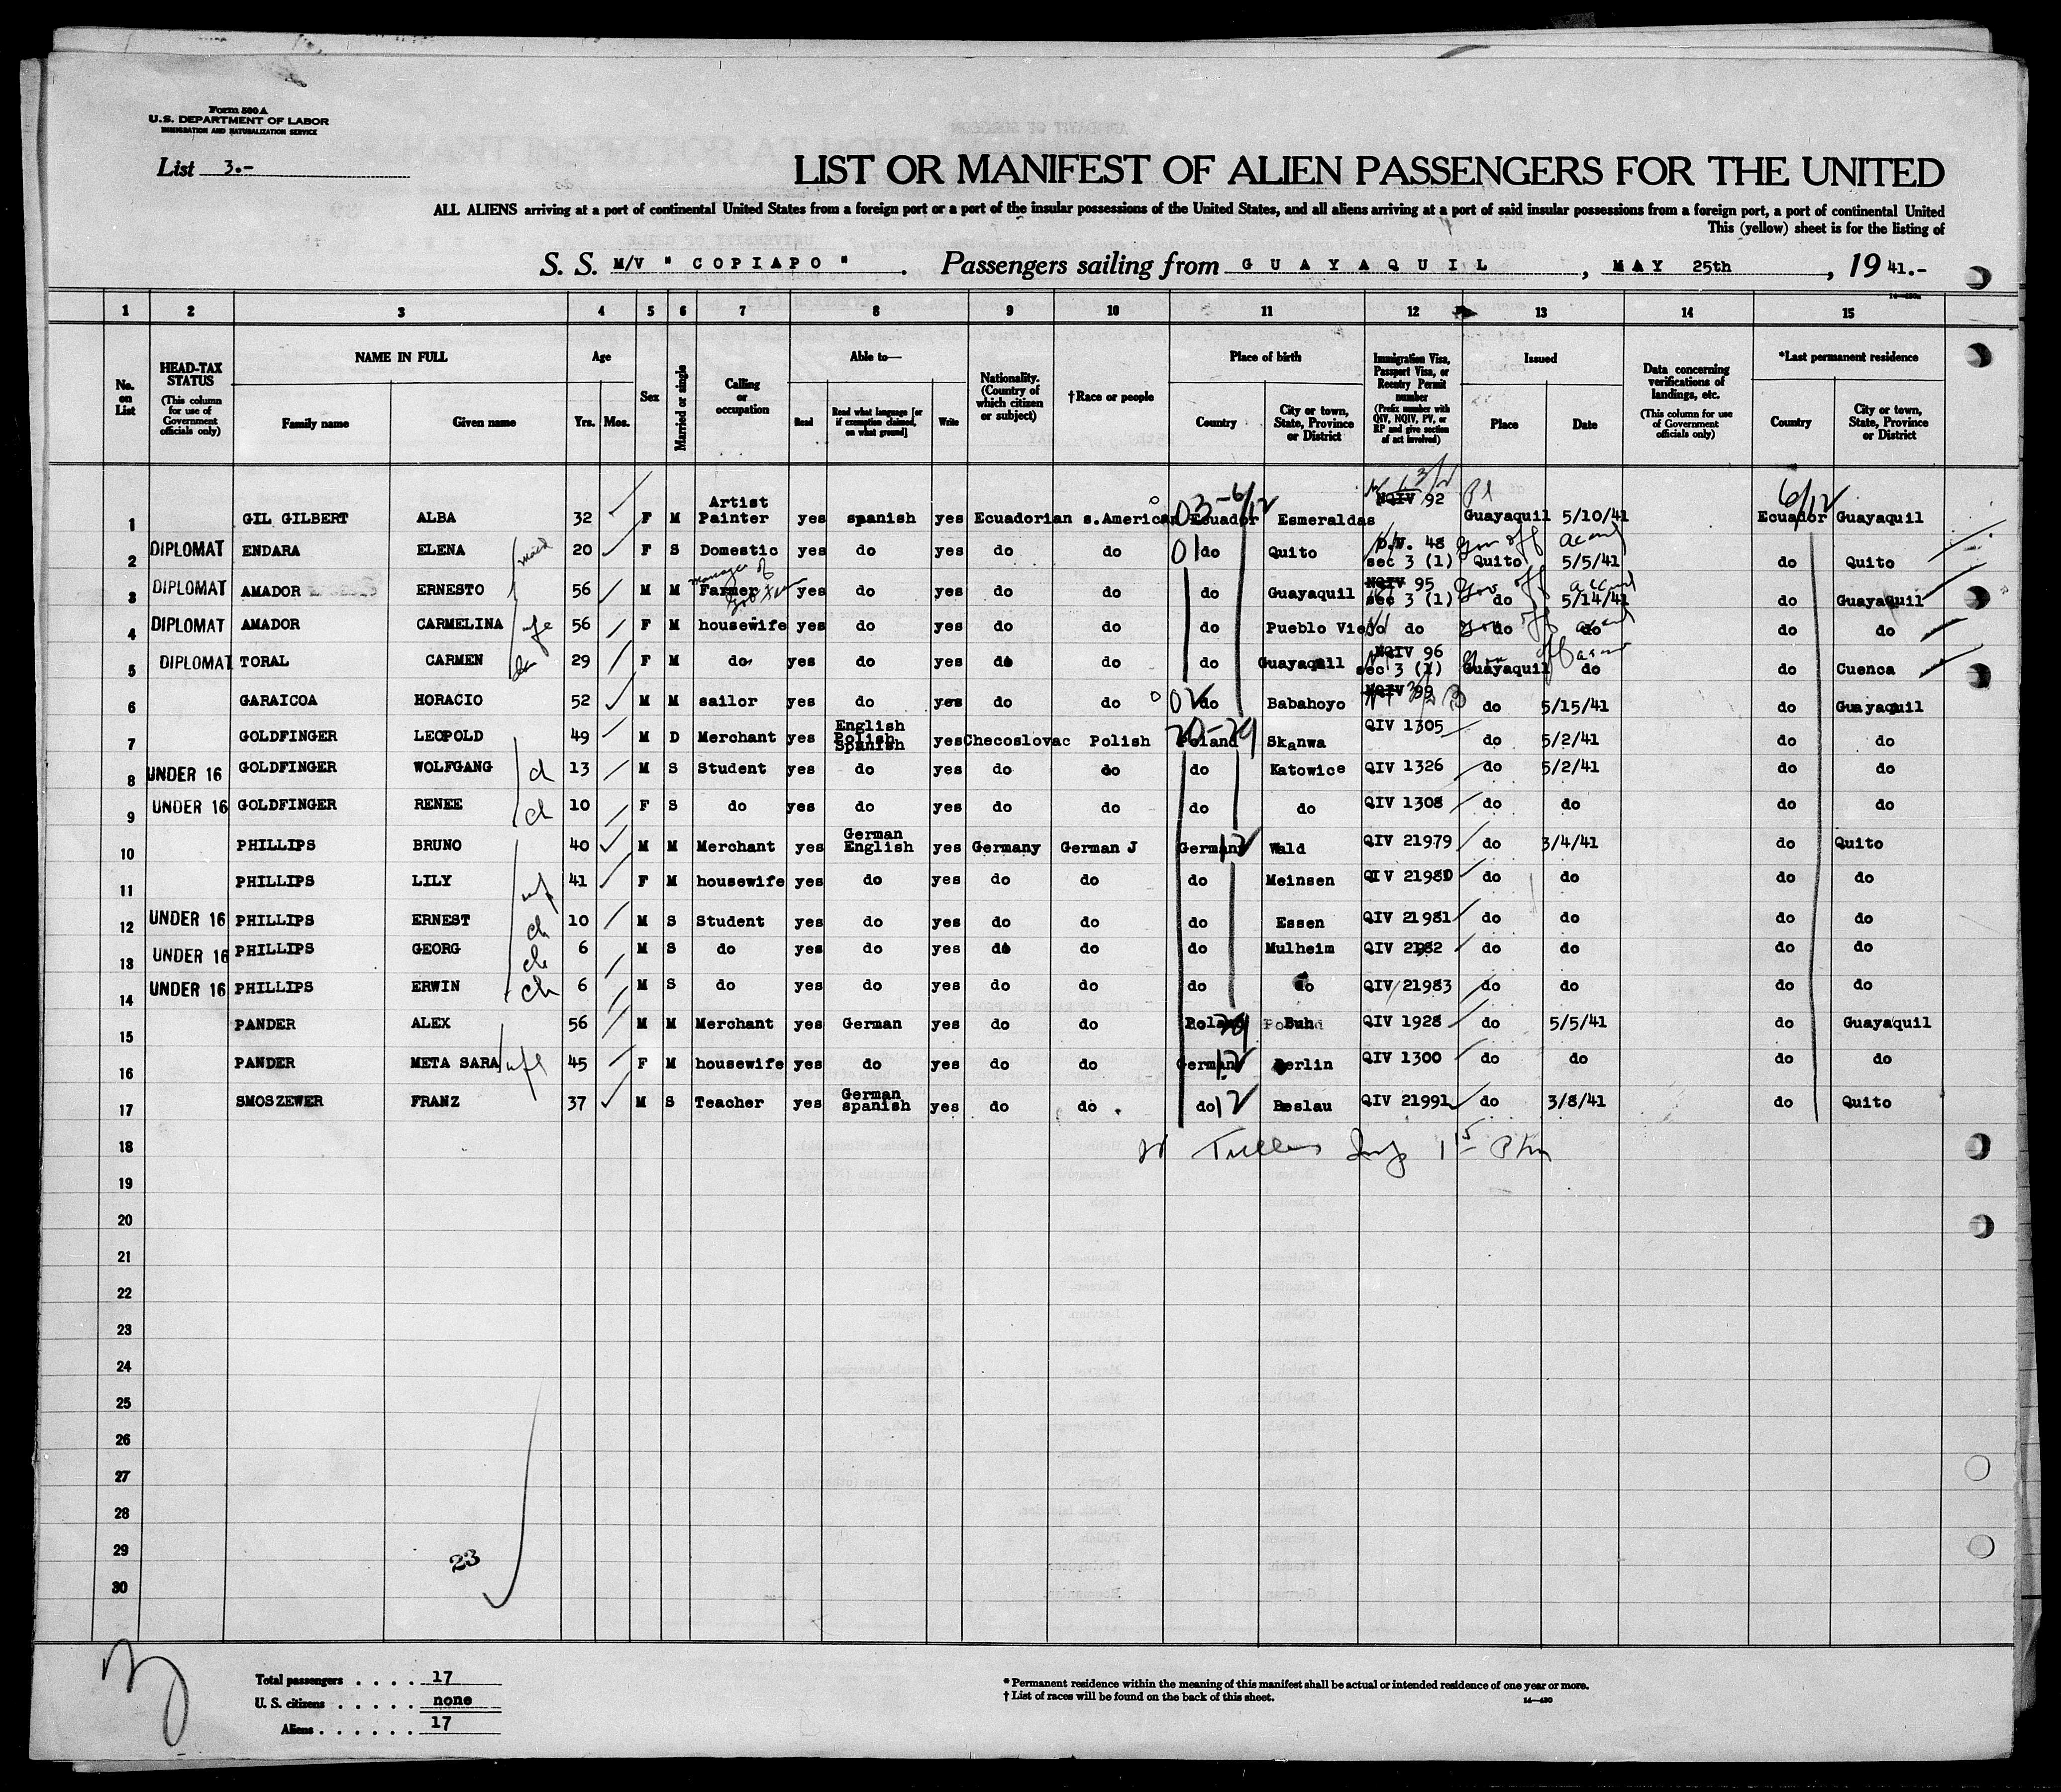 Form 500 A
U.S. DEPARTMENT OF LABOR
IMMIGRATION AND NATURALIZATION SERVICE
List 3.-
LIST OR MANIFEST OF ALIEN PASSENGERS FOR THE UNITED
ALL ALIENS arriving at a port of continental United States from a foreign port or a port of the insular possessions of the United States, and all aliens arriving at a port of said insular possessions from a foreign port, a port of continental United
This (yellow) sheet is for the listing of
S. S. M/V " COPIAPO " . Passengers sailing from GUAYAQUIL , MAY 25th , 19 41.-
1 2 3 4 5 6 7 8 9 10 11 12 13 14 15
No. on List
HEAD-TAX STATUS (This column for use of Government officials only)
NAME IN FULL
Family name Given name
Age
Yrs. Mos.
Sex
Married or single
Calling or occupation
Able to—
Read Read what language [or if exemption claimed, on what ground] Write
Nationality. (Country of which citizen or subject)
†Race or people
Place of birth
Country City or town, State, Province or District
Immigration Visa, Passport Visa, or Reentry Permit number (Prefix number with QIV, NQIV, PV, or RP and give section of act involved)
Issued
Place Date
Data concerning verifications of landings, etc. (This column for use of Government officials only)
*Last permanent residence
Country City or town, State, Province or District
1 GIL GILBERT ALBA 32 F M Artist Painter yes spanish yes Ecuadorian s.American Ecuador 03-6/12 Esmeraldas NQIV 92 Guayaquil 5/10/41 Ecuador 6/12 Guayaquil
2 DIPLOMAT ENDARA ELENA maid 20 F S Domestic yes do yes do do 01 do Quito D.V. 48 sec 3 (1) Quito 5/5/41 do Quito
3 DIPLOMAT AMADOR ERNESTO 56 M M Farmer manager of yes do yes do do do Guayaquil NQIV 95 sec 3 (1) do 5/14/41 do Guayaquil
4 DIPLOMAT AMADOR CARMELINA 56 F M housewife yes do yes do do do Pueblo Viejo do do do do do
5 DIPLOMAT TORAL CARMEN 29 F M do yes do yes do do do Guayaquil NQIV 96 sec 3 (1) Guayaquil do do Cuenca
6 GARAICOA HORACIO 52 M M sailor yes do yes do do do Babahoyo NQIV 99 do 5/15/41 do Guayaquil
7 GOLDFINGER LEOPOLD 49 M D Merchant yes English Polish Spanish yes Checoslovac Polish Poland Skanwa QIV 1305 do 5/2/41 do do
8 UNDER 16 GOLDFINGER WOLFGANG 13 M S Student yes do yes do do do Katowice QIV 1326 do 5/2/41 do do
9 UNDER 16 GOLDFINGER RENEE ch 10 F S do yes do yes do do do do QIV 1308 do do do do
10 PHILLIPS BRUNO 40 M M Merchant yes German English yes Germany German J Germany 12 Wald QIV 21979 do 3/4/41 do Quito
11 PHILLIPS LILY wf 41 F M housewife yes do yes do do do Meinsen QIV 21980 do do do do
12 UNDER 16 PHILLIPS ERNEST ch 10 M S Student yes do yes do do do Essen QIV 21981 do do do do
13 UNDER 16 PHILLIPS GEORG ch 6 M S do yes do yes do do do Mulheim QIV 2182 do do do do
14 UNDER 16 PHILLIPS ERWIN ch 6 M S do yes do yes do do do do QIV 21983 do do do do
15 PANDER ALEX 56 M M Merchant yes German yes do do Poland Buh QIV 1928 do 5/5/41 do Guayaquil
16 PANDER META SARA wife 45 F M housewife yes do yes do do Germany 12 Berlin QIV 1300 do do do do
17 SMOSZEWER FRANZ 37 M S Teacher yes German spanish yes do do do 12 Beslau QIV 21991 do 3/8/41 do Quito
18
19
20
21
22
23
24
25
26
27
28
29 23
30
Total passengers . . . . 17
U. S. citizens . . . . . none
Aliens . . . . . . 17
* Permanent residence within the meaning of this manifest shall be actual or intended residence of one year or more.
† List of races will be found on the back of this sheet.
14—430